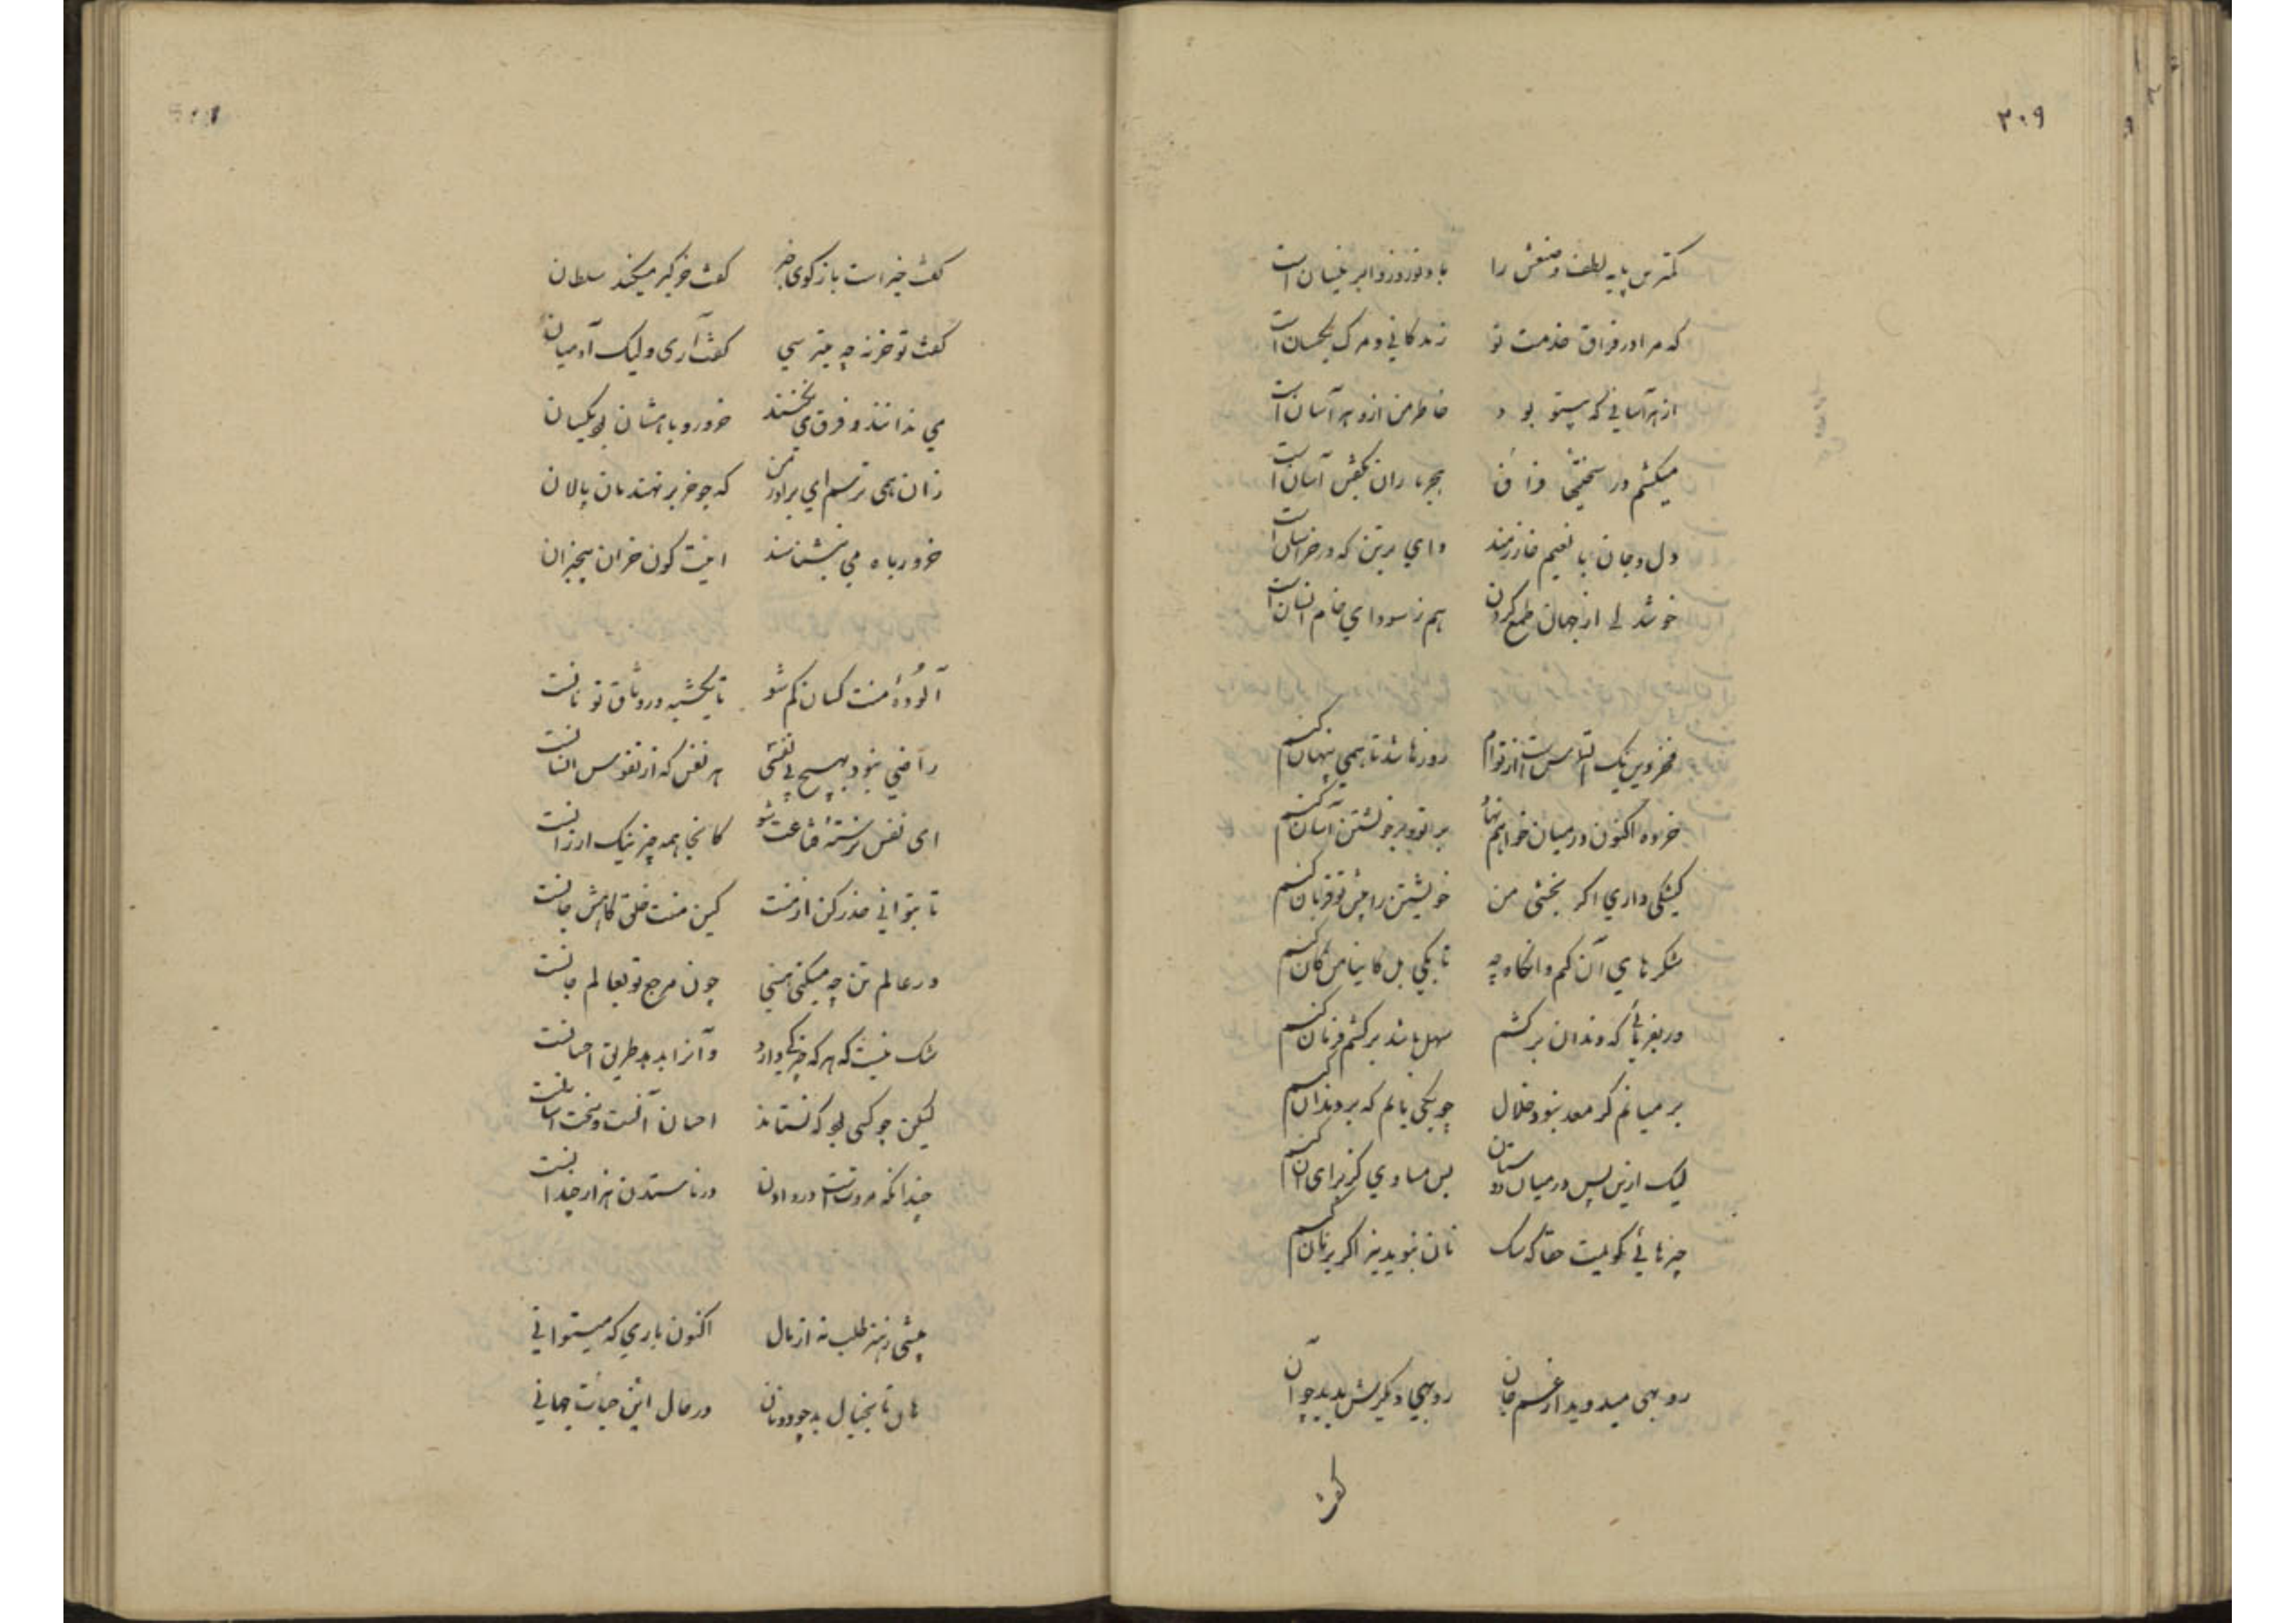 ۲۰۹
کمترین پایه لطف و صنعش را    باد نوروز و ابر نیسان است
که مرا در فراق خدمت تو    زندگانی و مرگ یکسان است
از هر آسانی که بیتو بود    خاطر من ازو هر آسان است
میکشم در سختی فراق    آسان است
دل و جان با نعیم خانه زند    وای برتن که در خراسان است
خوشدلی از جهان طمع کردن    هم ز سودای خام انسان است
فخر دین یک التماس است از توام    روزها شد تا همی پنهان کنم
خرده اکنون در میان خواهم نهاد    بر تو و بر خویشتن آسان کنم
کشکی داری اگر بخشی بمن    خویشتن را پیش تو قربان کنم
شکرهای آن کنم وانگاه چه    تا یکی بل کانیا من آن کنم
ور بغربائی که دندان برکشم    سهل باشد برکشم فرمان کنم
بر میانم گر معد نبود خلال    چوبکی یابم که بر دندان کنم
لیک ازین پس در میان دوستان    بس مساوی کز برای آن کنم
چیزهائی گویمت حقا که سگ    نان نبوید نیز اگر بر نان کنم
روبهی میدوید از غم جان    روبهی دیگرش بدید چو آن
گفت
گفت خیر است باز گوی خبر    گفت خر گیر میکند سلطان
گفت تو خر نه چه میترسی    گفت آری ولیک آدمیان
می ندانند و فرق می نکنند    خر و روباهشان بود یکسان
زان همی ترسم ای برادر من    که چو خر برنهندمان پالان
خر و روباه می بنشناسند    اینت کون خران بیخبران
آلودهٔ منت کسان کم شو    تا یکشبه در وثاق تو نانست
راضی نبود بهیچ بی نفسی    هر نفس که از نفوس انسانست
ای نفس برستهٔ قناعت شو    کانجا همه چیز نیک ارزانست
تا بتوانی حذر کن از منت    کین منت خلق کاهش جانست
در عالم تن چه میکنی هستی    چون مرجع تو بعالم جانست
شک نیست که هر که چیزکی دارد    وآنرا بدهد طریق احسانست
لیکن چو کسی بود که نستاند    احسان آنست و سخت آسانست
چندانکه مروتست در دادن    در ناستدن هزار چندانست
بیشی ز هنر طلب نه از مال    اکنون باری که میتوانی
هان تا بخیال بد چو دونان    در حال این حیات جهانی